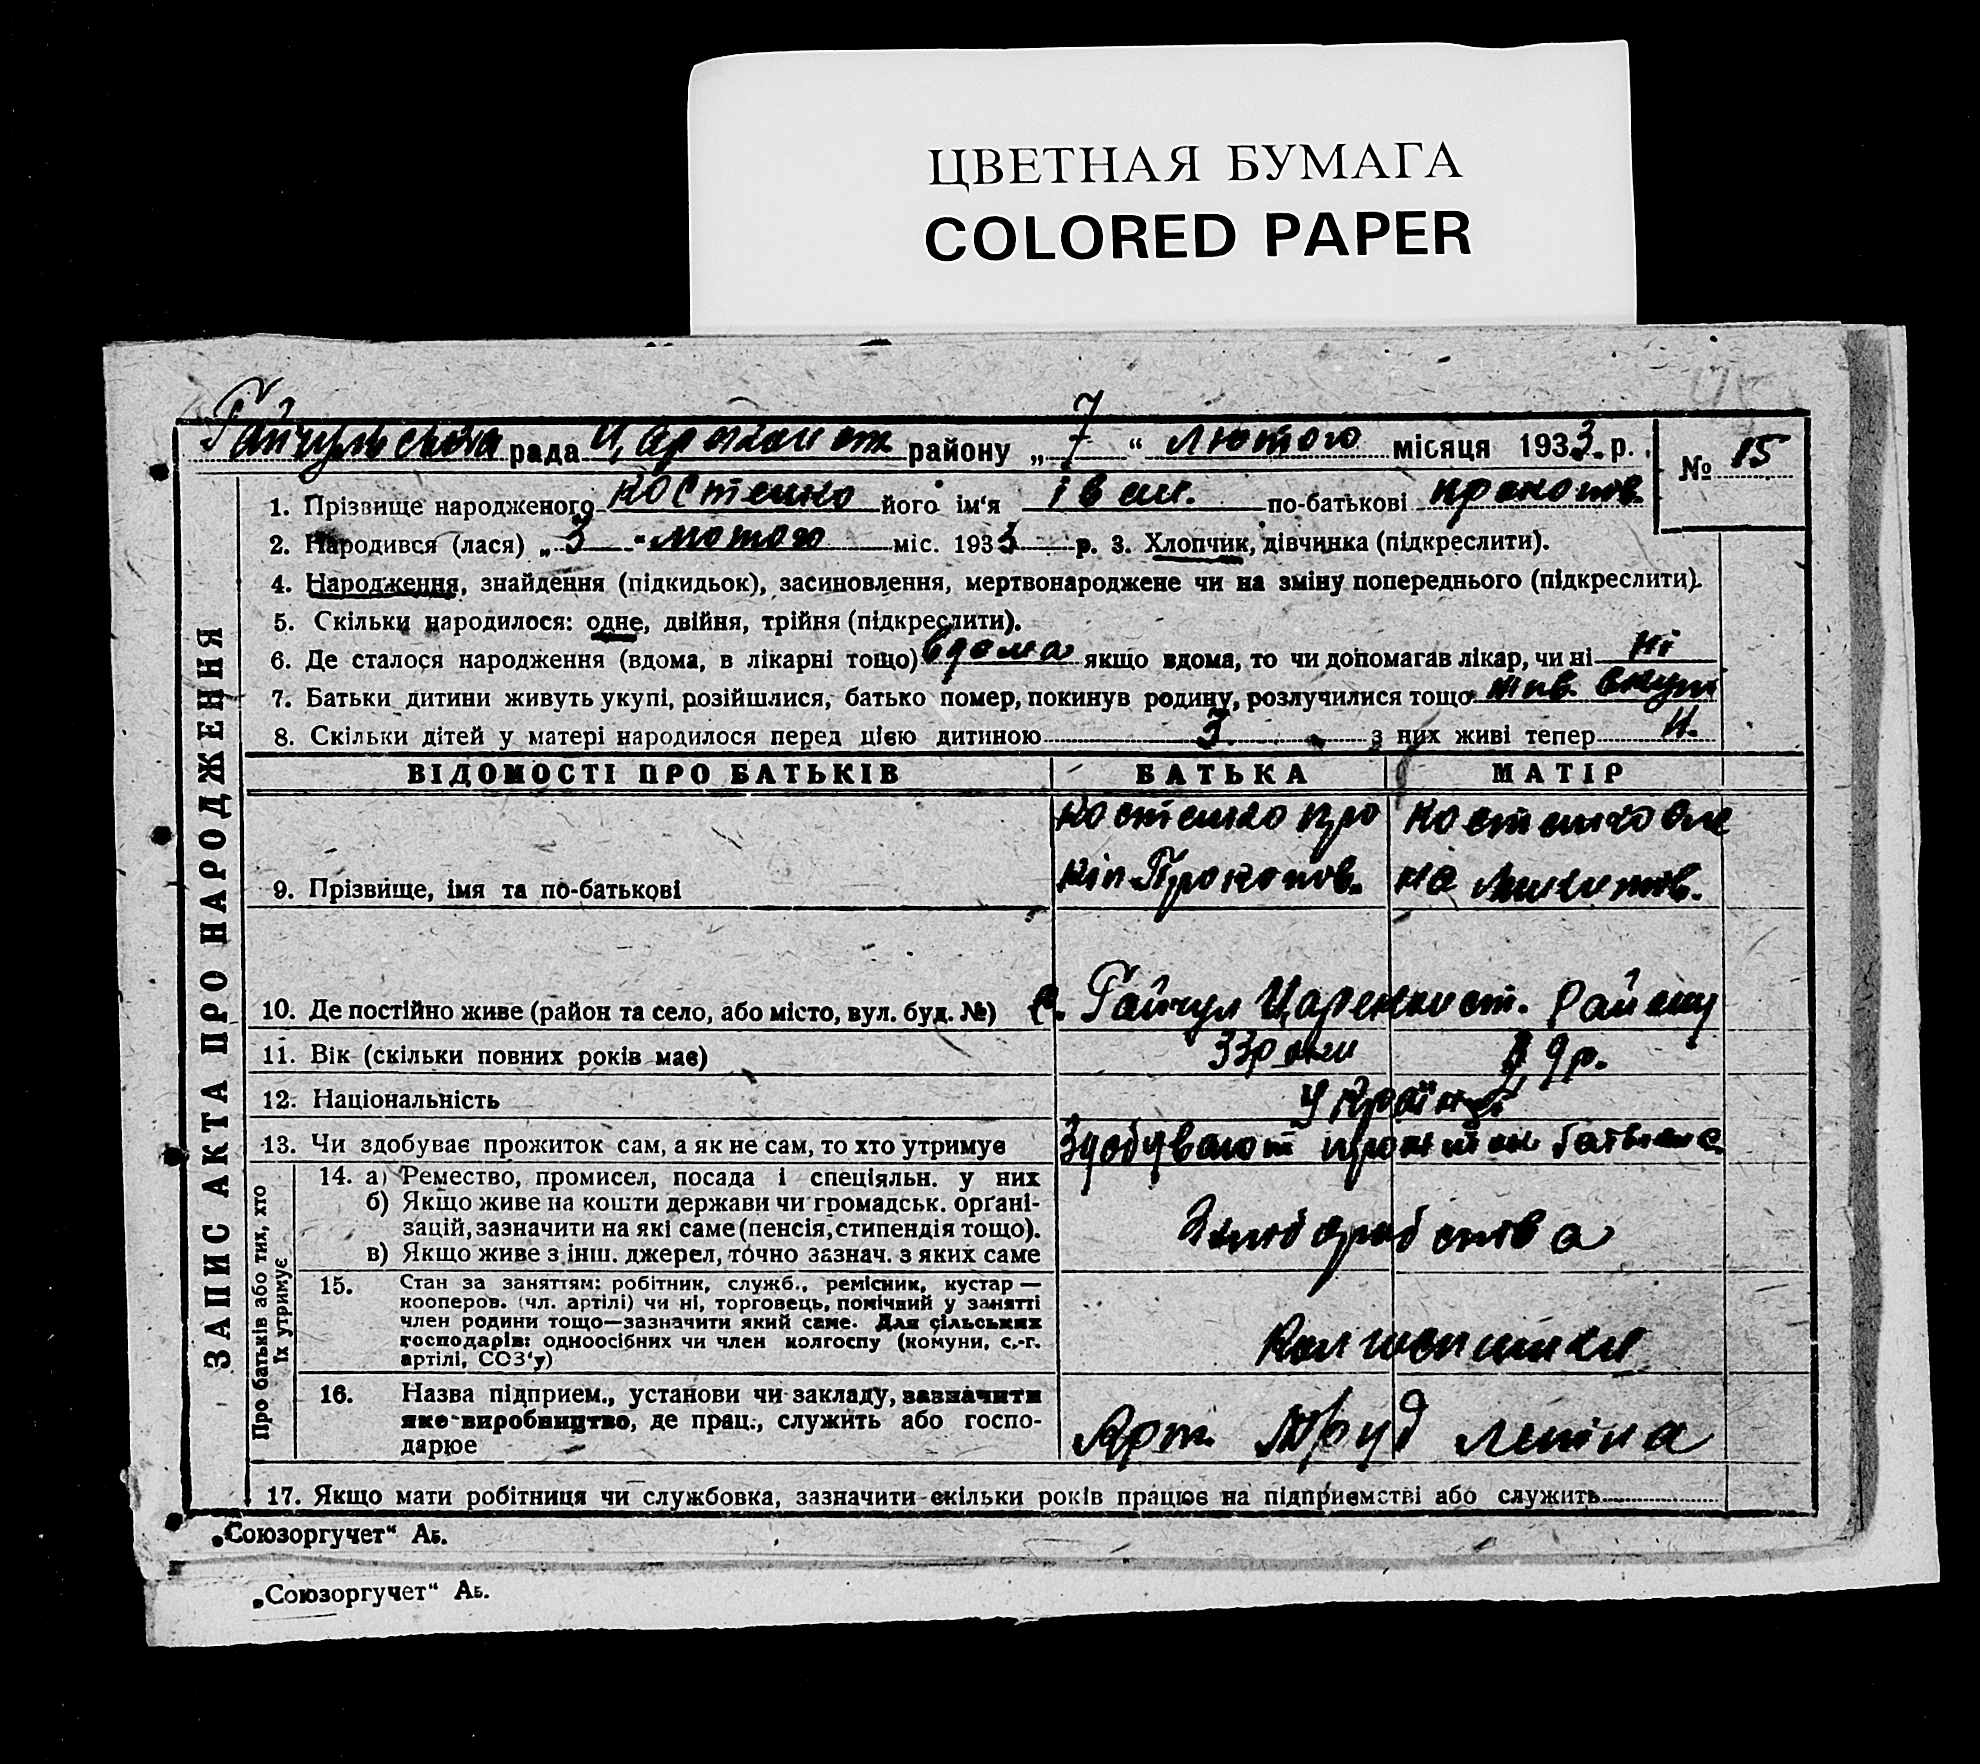 ЦВЕТНАЯ БУМАГА
COLORED PAPER
Гайчульська рада району „ 7 “ лютого місяця 1933. р. № 15
ЗАПИС АКТА ПРО НАРОДЖЕННЯ
1. Прізвище народженого Костенко його ім‘я Іван. по-батькові прокопов.
2. Народився (лася) „ 3 “ лютого міс. 1933 р. 3. Хлопчик, дівчинка (підкреслити).
4. Народження, знайдення (підкидьок), засиновлення, мертвонароджене чи на зміну попереднього (підкреслити).
5. Скільки народилося: одне, двійня, трійня (підкреслити).
6. Де сталося народження (вдома, в лікарні тощо) вдома якщо вдома, то чи допомагав лікар, чи ні ні
7. Батьки дитини живуть укупі, розійшлися, батько помер, покинув родину, розлучилися тощо жив. вкупі
8. Скільки дітей у матері народилося перед цією дитиною 3 з них живі тепер
ВІДОМОСТІ ПРО БАТЬКІВ БАТЬКА МАТІР
костенко про костенко оле
9. Прізвище, імя та по-батькові кіп Прокопов. на Микитов.
10. Де постійно живе (район та село, або місто, вул. буд. №) с. Гайчул району
11. Вік (скільки повних років має) 33 роки 29 р.
12. Національність Україн
13. Чи здобуває прожиток сам, а як не сам, то хто утримує Здобувают прожиток
Про батьків або тих, хто їх утримує
14. а) Ремество, промисел, посада і спеціяльн. у них
б) Якщо живе на кошти держави чи громадськ. орґані-
зацій, зазначити на які саме (пенсія, стипендія тощо).
в) Якщо живе з інш. джерел, точно зазнач. з яких саме
Хліборобства
15. Стан за заняттям: робітник, служб., ремісник, кустар —
кооперов. (чл. артілі) чи ні, торговець, помічний у занятті
член родини тощо—зазначити який саме. Для сільських
господарів: одноосібних чи член колгоспу (комуни, с.-г.
артілі, СОЗ‘у)
Колгоспники
16. Назва підприєм., установи чи закладу, зазначити
яке виробництво, де прац., служить або госпо-
дарює
Арт. Труд Леніна
17. Якщо мати робітниця чи службовка, зазначити скільки років працює на підприємстві або служить
„Союзоргучет“ Аб.
„Союзоргучет“ Аб.